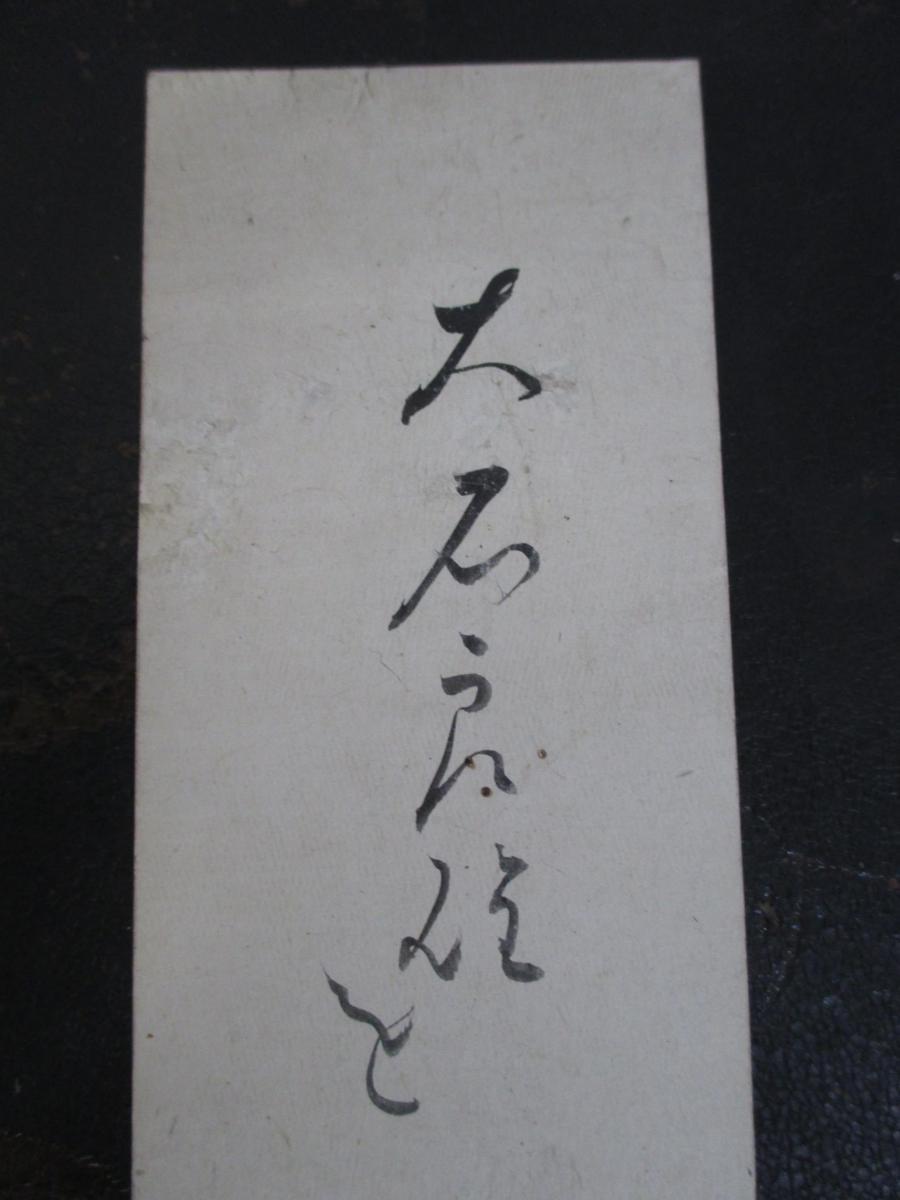 大石良雄を